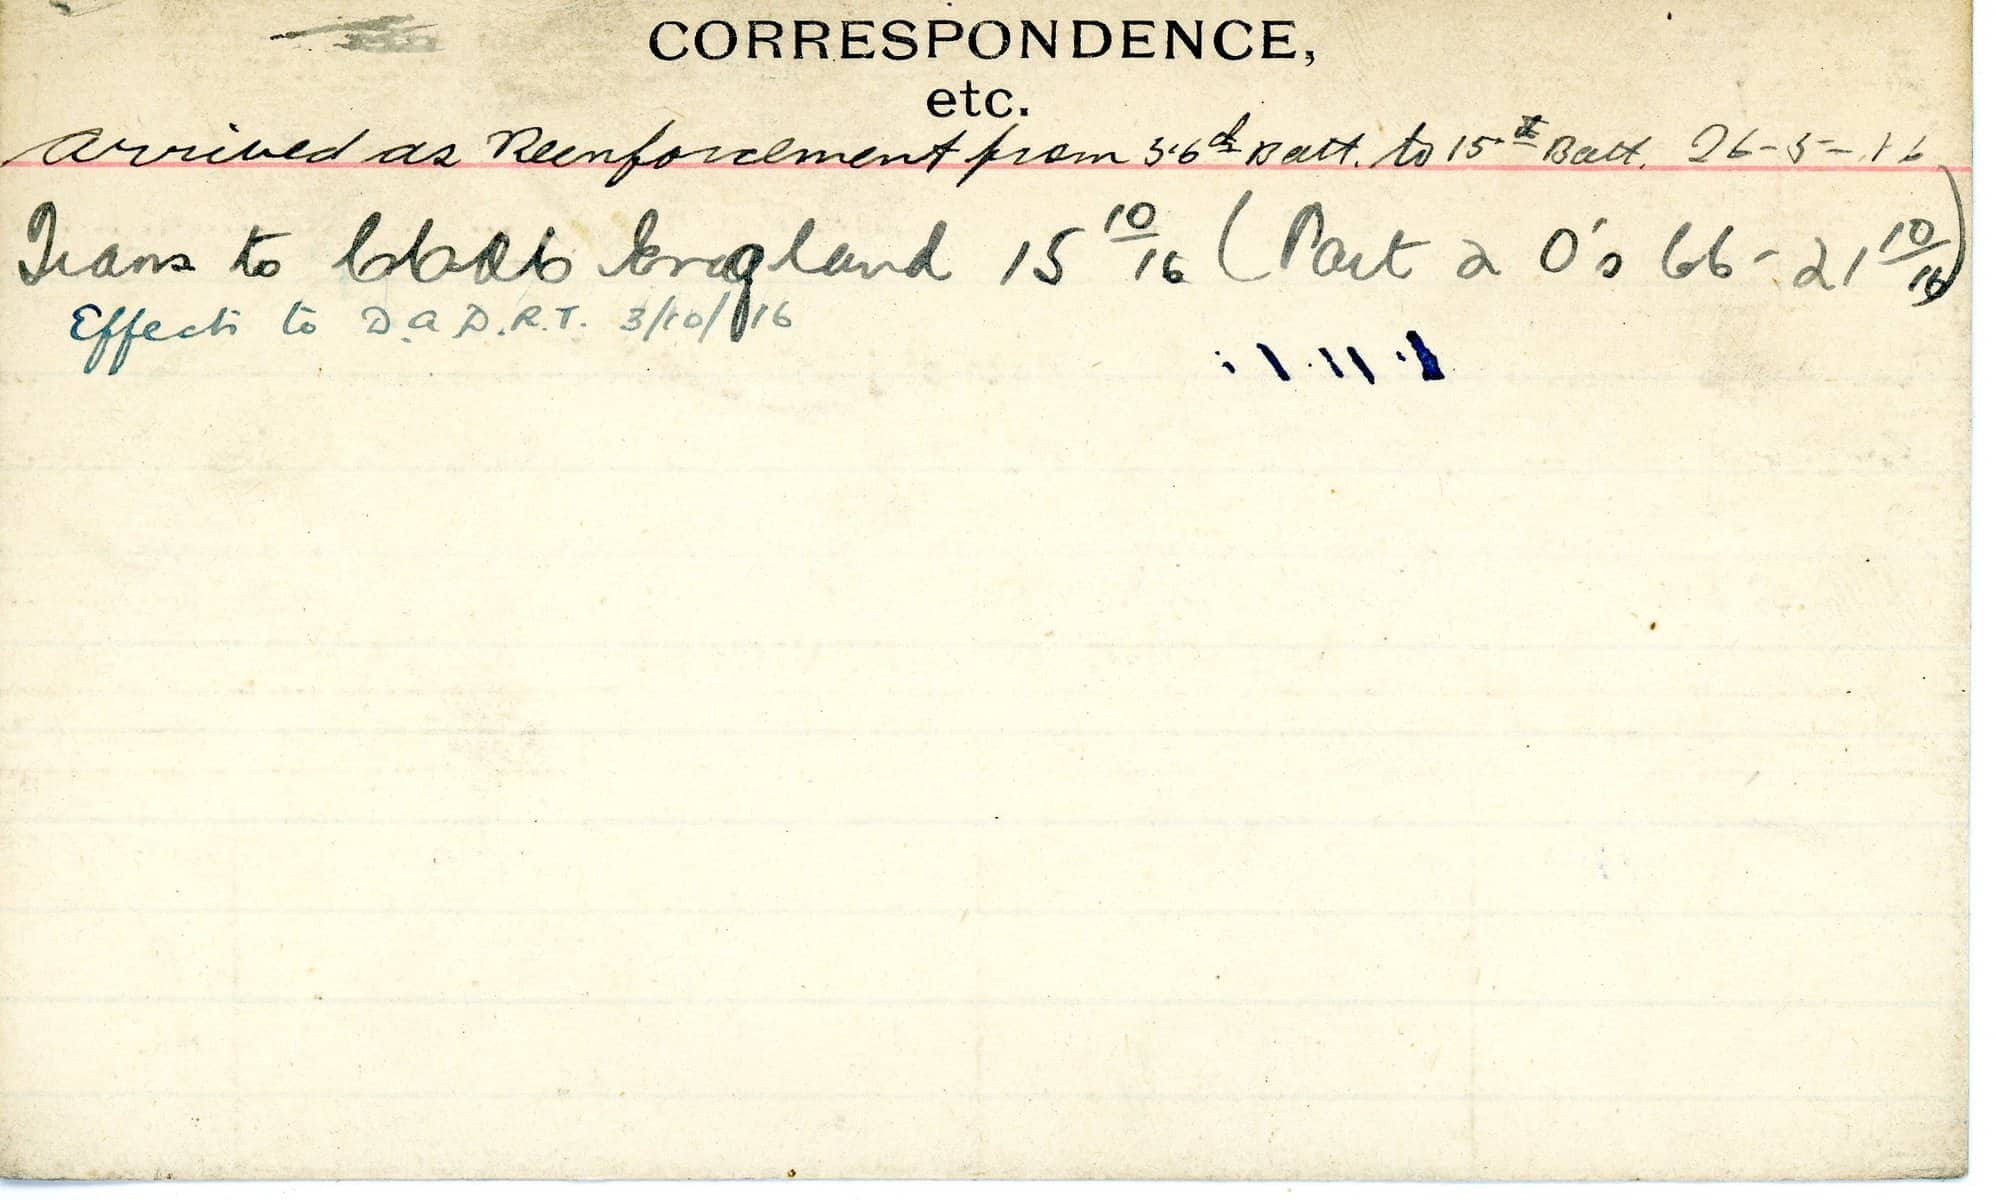 CORRESPONDENCE,
etc.
Arrived as Reenforcement from 56th Batt. to 15th Batt. 26-5-16
Trans to CCAC England 15 10/16 (Part 2 O's 66-21 10/16)
Effects to D.A.D.R.T. 3/10/16